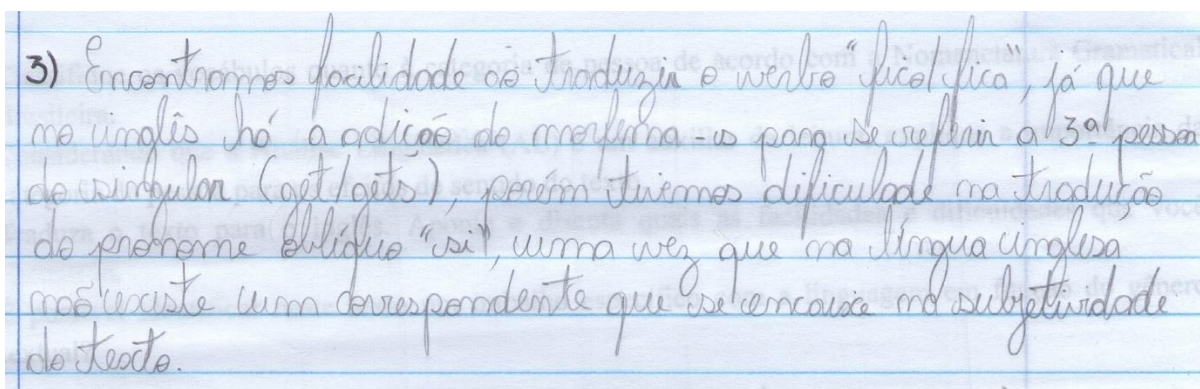 3) Encontramos facilidade ao traduzir o verbo "fico/fica", já que
no inglês há a adição do morfema s para se referir a 3ª pessoa
do singular (get/gets), porém tivemos dificuldade na tradução
do pronome oblíquo "si", uma vez que na língua inglesa
não existe um correspondente que se encaixe na subjetividade
do texto.